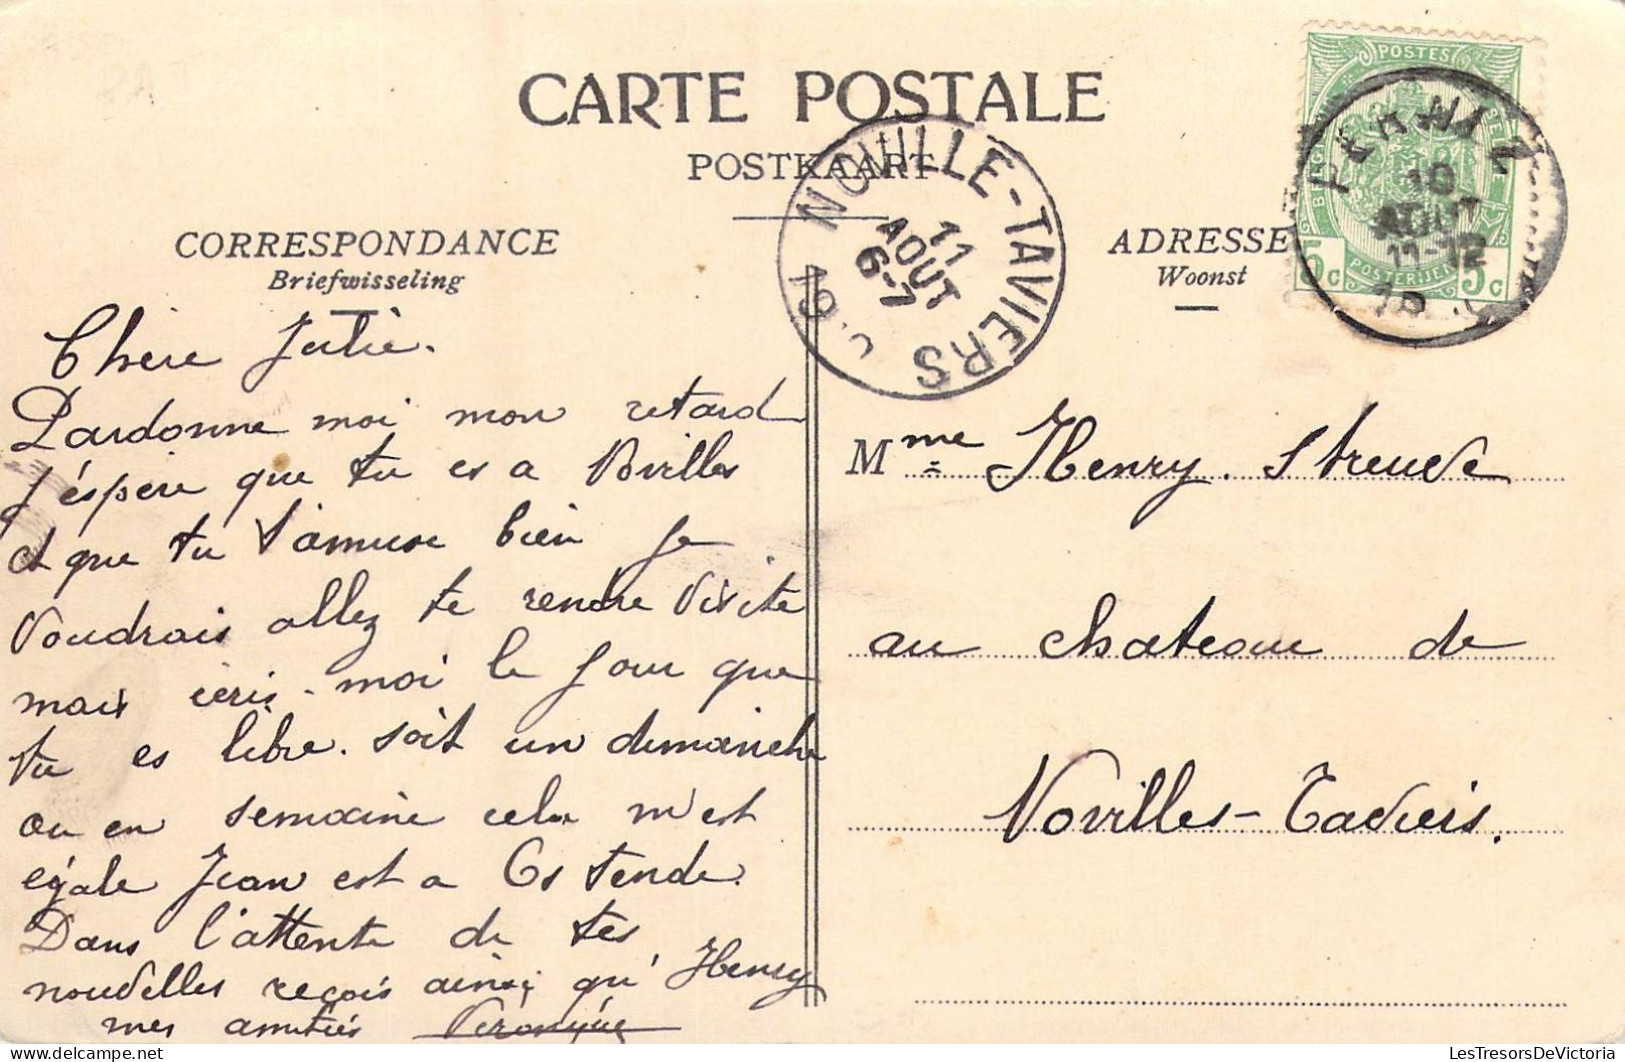 CARTE POSTALE
POSTKAART
CORRESPONDANCE
Briefwisseling
ADRESSE
Woonst
POSTES
POSTERIJEN
5c 5c
10
AOUT
11-12
NOVILLE-TAVIERS
11
AOUT
6-7
Chère Julie.
Pardonne moi mon retard
j'éspère que tu es a Novilles
et que tu t'amuse bien je
voudrais allez te rendre visite
mais écris-moi le jour que
tu es libre. soit un dimanche
ou en semaine cela m'est
égale Jean est a Ostende.
Dans l'attente de tes
nouvelles reçois ainsi qu'Henry
mes amitiés Veronique
Mme Henry. Streude
au chateau de
Novilles-Taviers.
LesTresorsDeVictoria